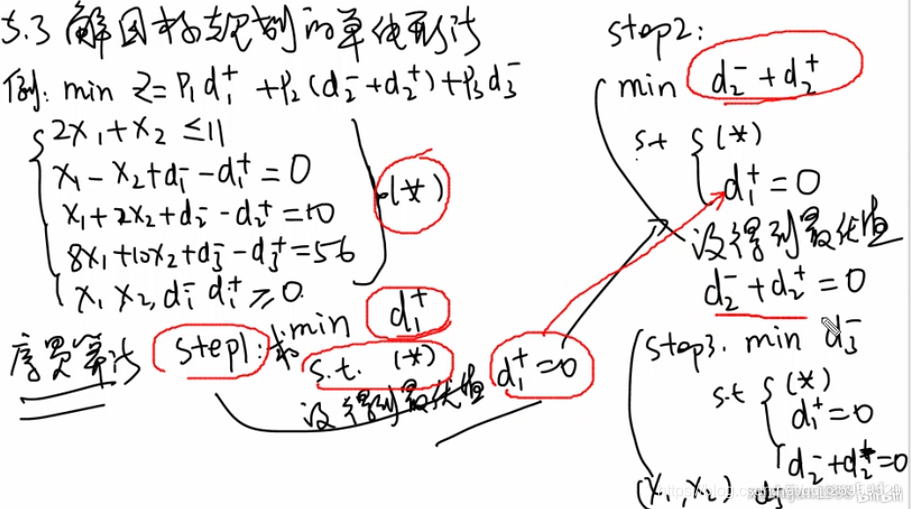 5.3 解目标规划的单纯形法
例: min Z=P₁d₁⁺ +P₂(d₂⁻+d₂⁺)+P₃d₃⁻
2x₁+x₂ ≤11
x₁-x₂+d₁⁻-d₁⁺=0
x₁+2x₂+d₂⁻-d₂⁺=10
8x₁+10x₂+d₃⁻-d₃⁺=56
x₁ x₂, dᵢ⁻ dᵢ⁺ ≥0.
(*)
序贯算法 step1: 求 min d₁⁺
s.t. (*)
设得到最优值 d₁⁺=0
step2:
min d₂⁻+d₂⁺
s.t (*)
d₁⁺=0
设得到最优值
d₂⁻+d₂⁺=0
step3. min d₃⁻
s.t (*)
d₁⁺=0
d₂⁻+d₂⁺=0
(x₁,x₂)